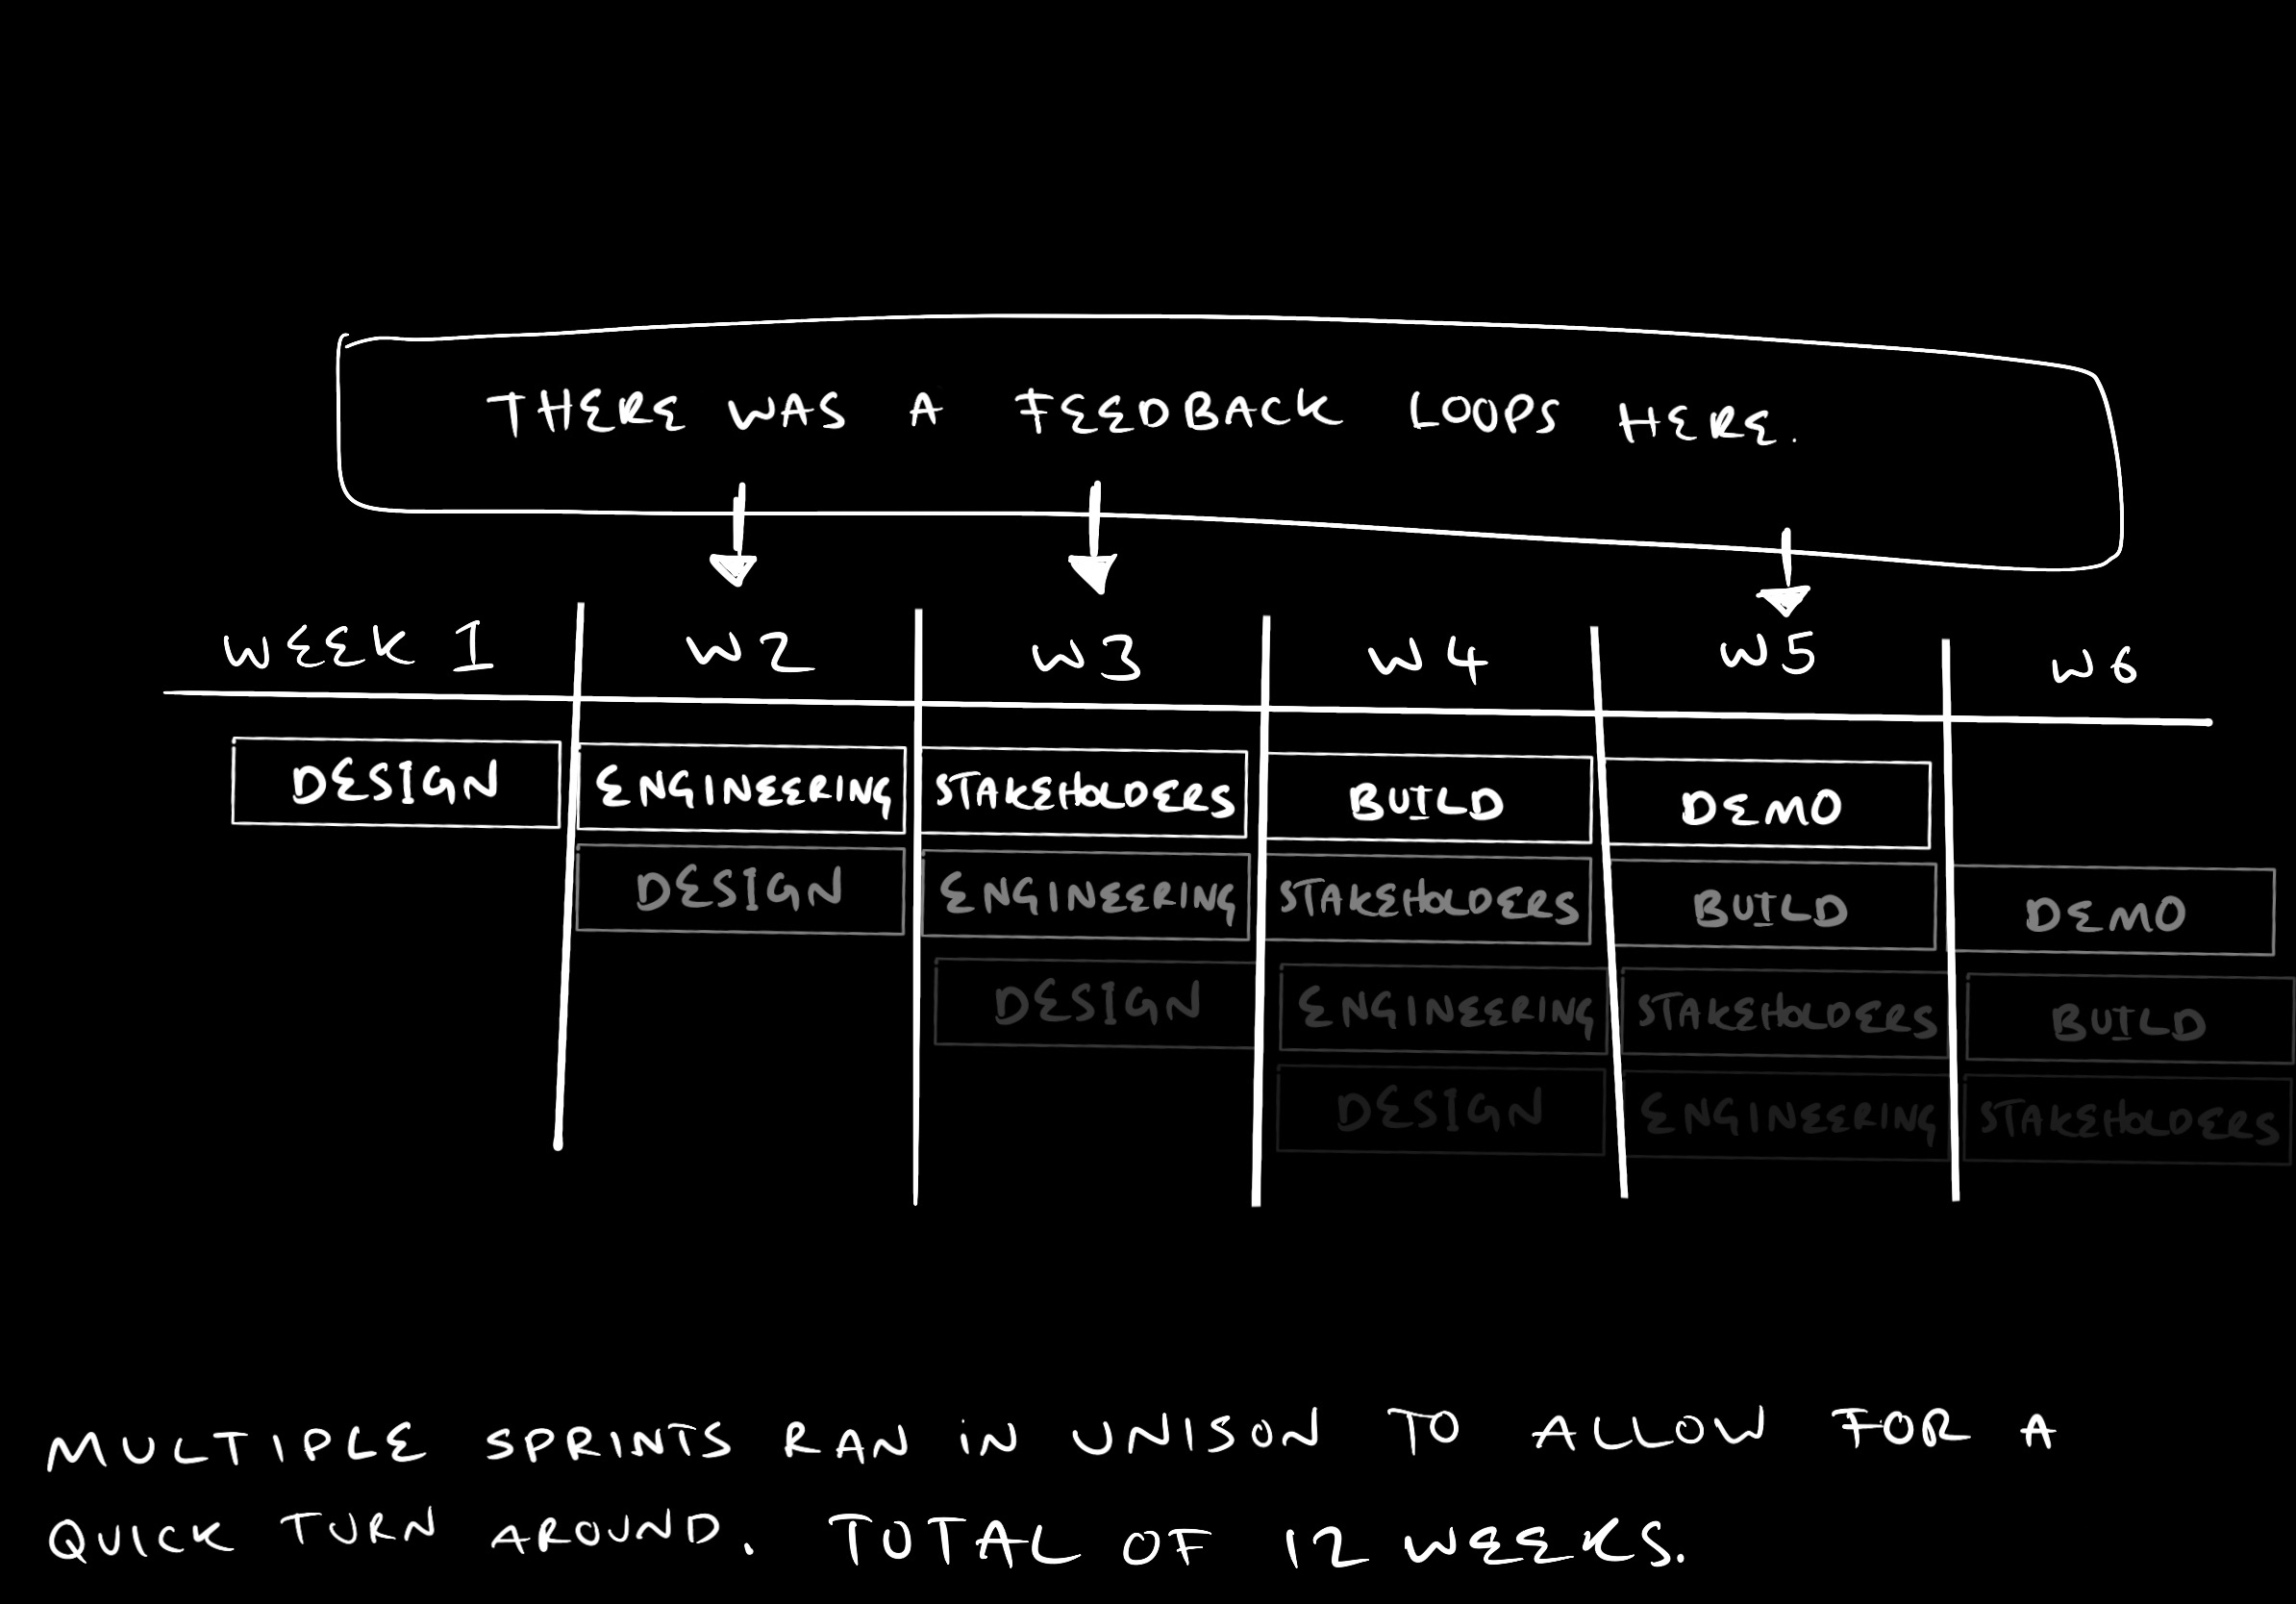 THERE WAS A FEEDBACK LOOPS HERE.
WEEK 1 W2 W3 W4 W5 W6
DESIGN ENGINEERING STAKEHOLDERS BUILD DEMO
DESIGN ENGINEERING STAKEHOLDERS BUILD DEMO
DESIGN ENGINEERING STAKEHOLDERS BUILD
DESIGN ENGINEERING STAKEHOLDERS
MULTIPLE SPRINTS RAN iN UNISON TO ALLOW FOR A
QUICK TURN AROUND. TOTAL OF 12 WEEKS.